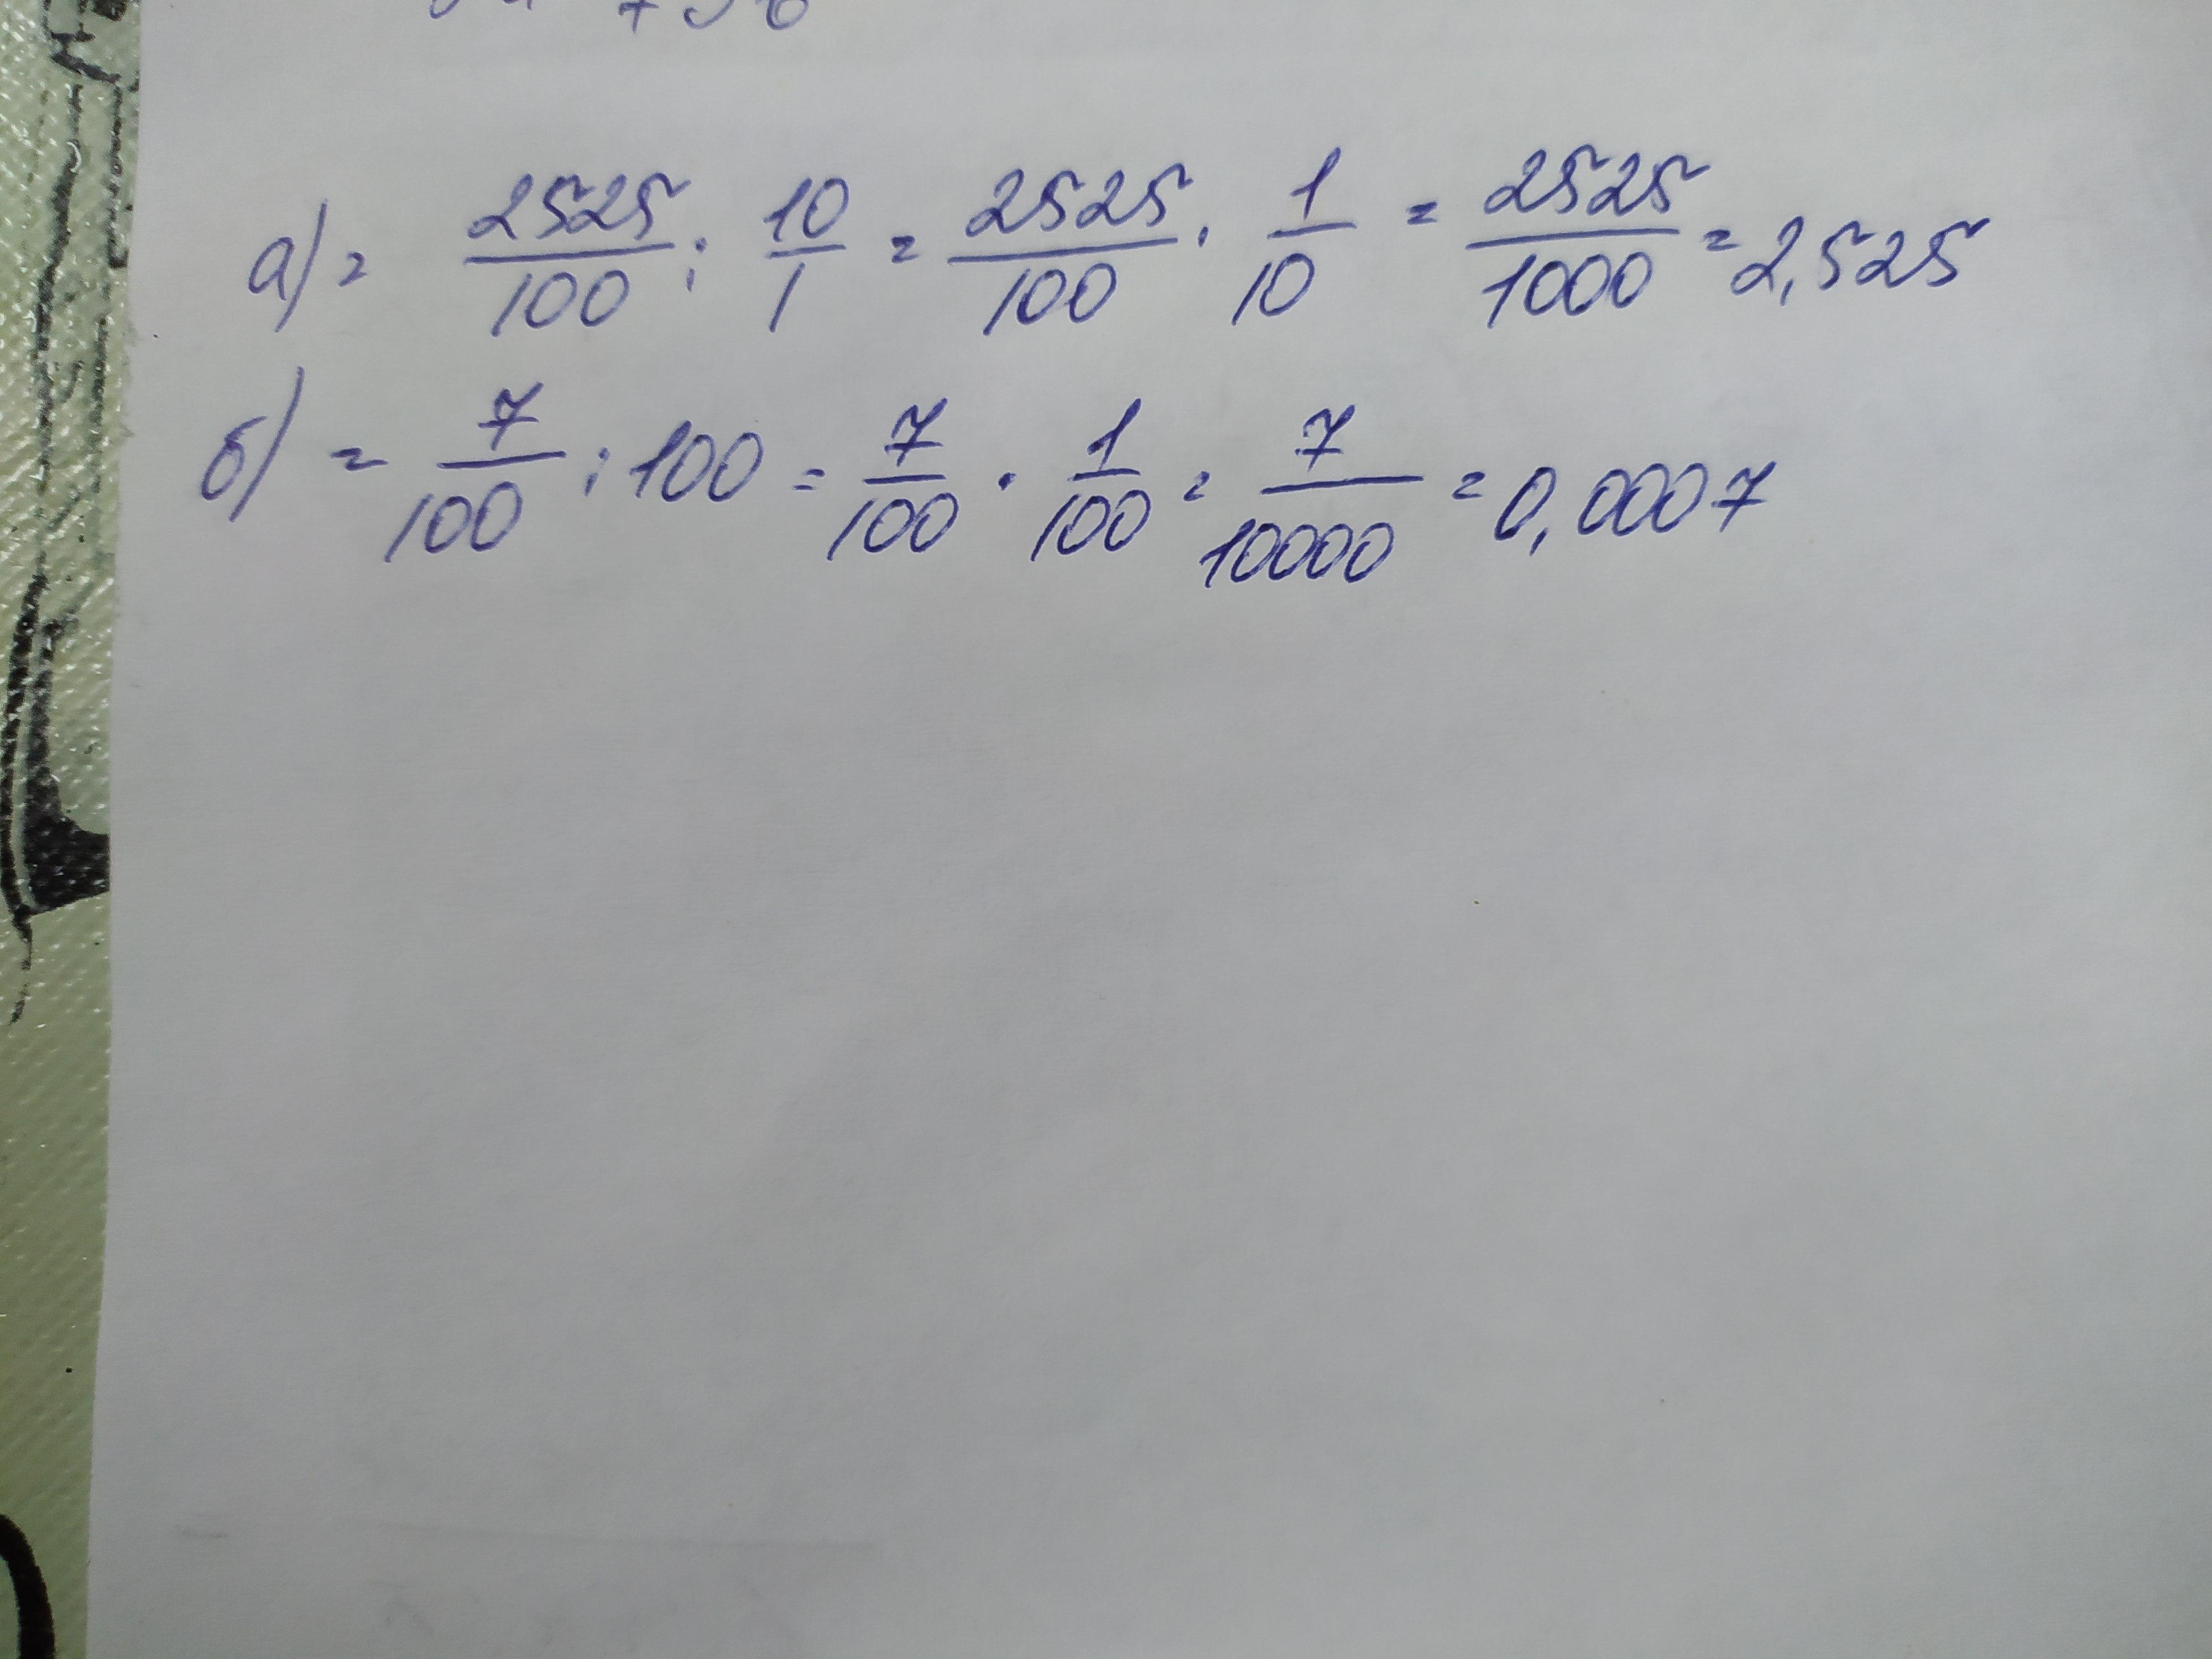 а) = 2525/100 : 10/1 = 2525/100 · 1/10 = 2525/1000 = 2,525
б) = 7/100 : 100 = 7/100 · 1/100 = 7/10000 = 0,0007